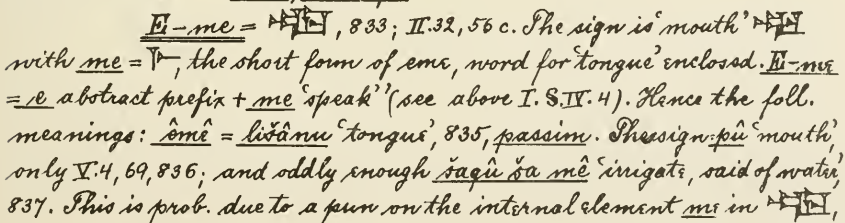 E-me = 𒅴, 833; II.32, 56 c. The sign is 'mouth' 𒅗
with me = 𒈨, the short form of eme, word for 'tongue' enclosed. E-me
= e abstract prefix + me 'speak'' (see above I. S. IV. 4). Hence the foll.
meanings: êmê = lišânu 'tongue', 835, passim. The sign = pû 'mouth',
only V.4, 69, 836; and oddly enough šaqû ša mê 'irrigate, said of water',
837. This is prob. due to a pun on the internal element me in 𒅴,